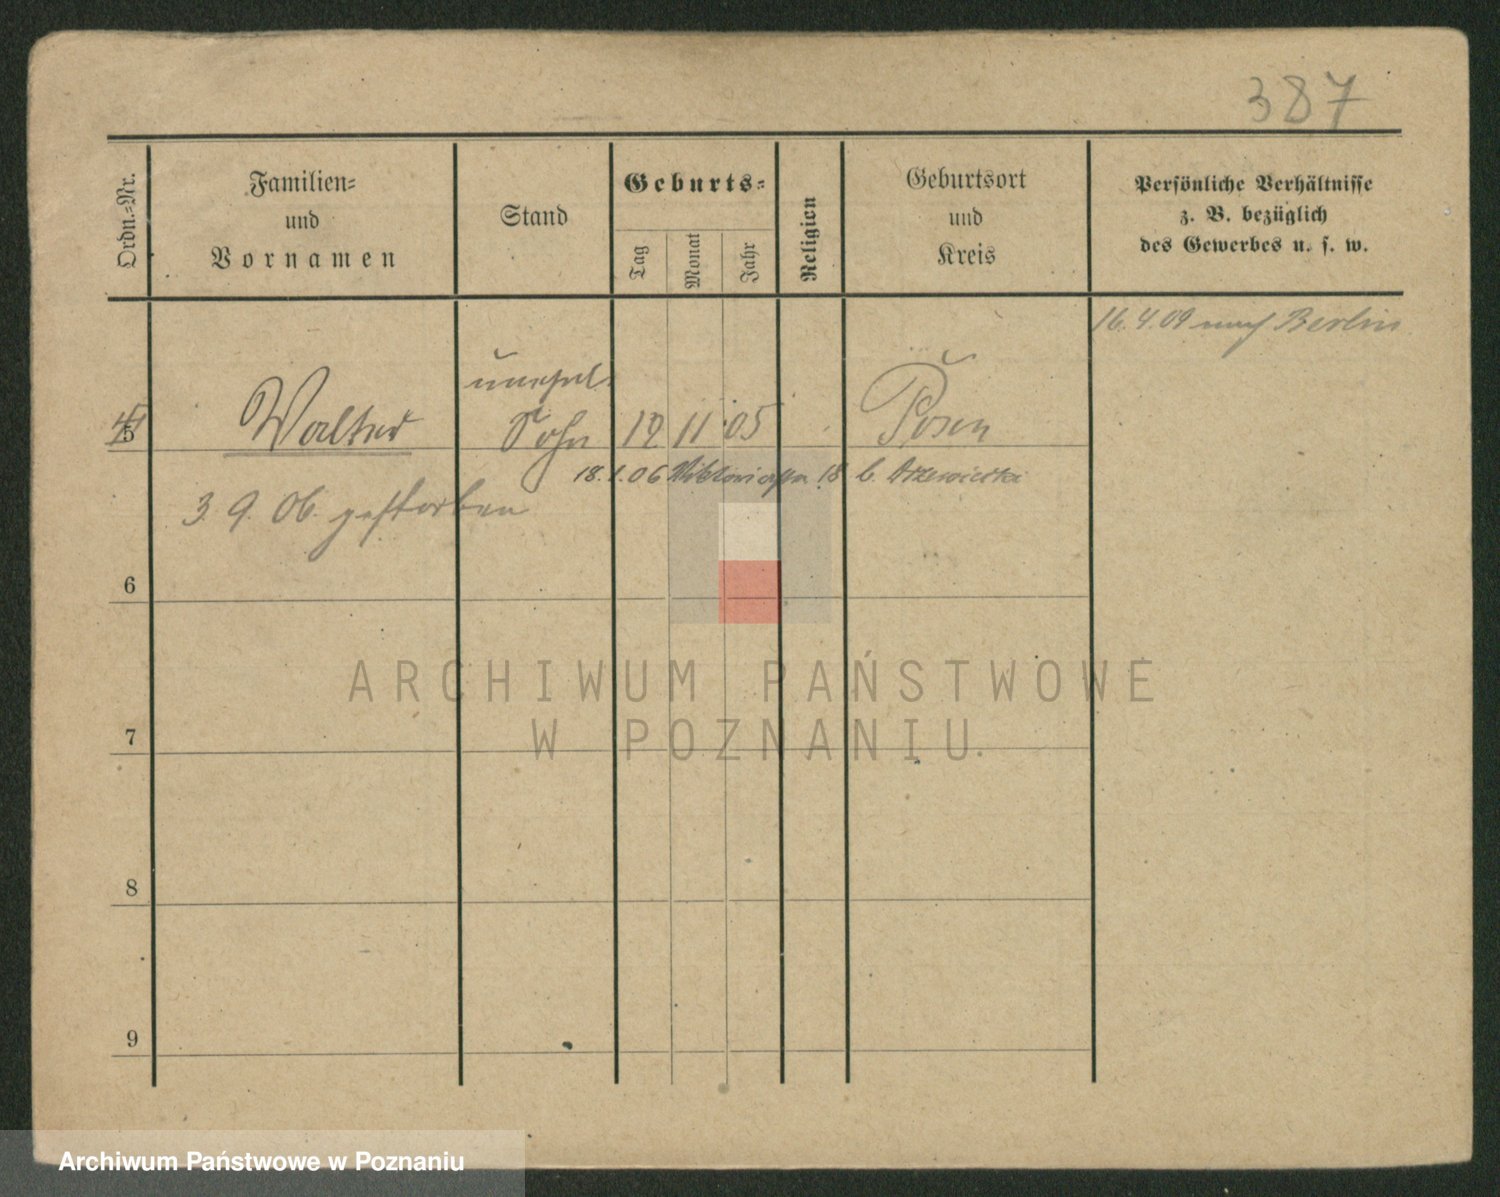 387
Ordn.-Nr.
Familien-
und
Vornamen
Stand
Geburts-
Tag
Monat
Jahr
Religion
Geburtsort
und
Kreis
Persönliche Verhältnisse
z. B. bezüglich
des Gewerbes u. s. w.
16. 4. 09 nach Berlin
unehel.
5 Walter Sohn 12 11 05 Posen
18. 1. 06 18 b.
3. 9. 06. gestorben
6
7
8
9
ARCHIWUM PAŃSTWOWE
W POZNANIU
Archiwum Państwowe w Poznaniu